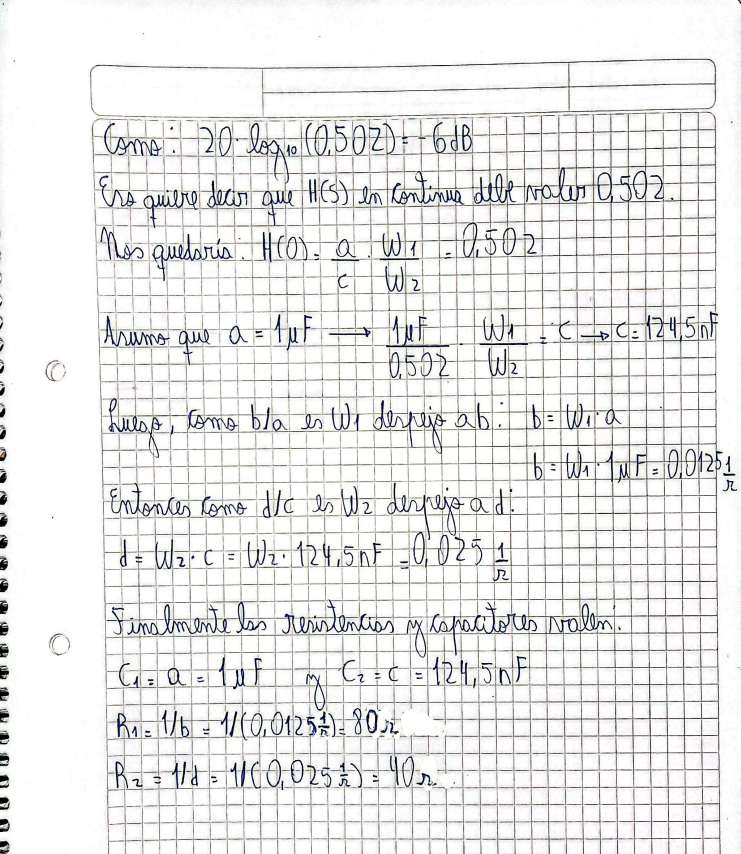 Como: 20·log₁₀(0,502)=-6dB
Eso quiere decir que H(S) en continua debe valer 0,502.
Nos quedaría: H(0)= a/c · W1/W2 = 0,502
Asumo que a = 1μF → 1μF/0,502 · W1/W2 = C → C=124,5nF
Luego, como b/a es W1 despejo a b: b= W1·a
b= W1·1μF=0,0125 1/Ω
Entonces como d/c es W2 despejo a d:
d= W2·C = W2·124,5nF =0,025 1/Ω
Finalmente las resistencias y capacitores valen:
C1= a = 1μF y C2=C=124,5nF
R1=1/b = 1/(0,0125 1/Ω)=80Ω
R2 = 1/d = 1/(0,025 1/Ω) = 40Ω